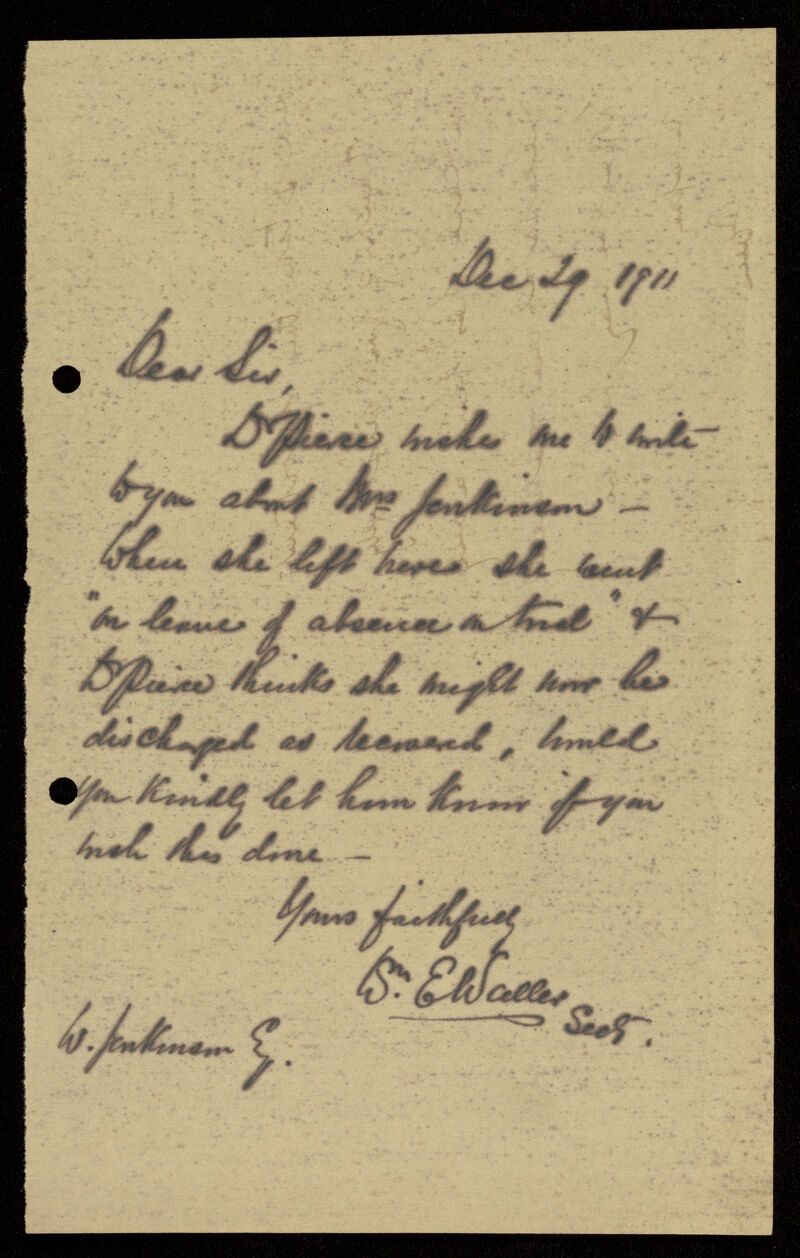 Dec 29 1911
Dear Sir,
Dr Pierce wishes me to write
to you about Mrs Jenkinson —
When she left here she went
"on leave of absence on trial" &
Dr Pierce thinks she might now be
discharged as recovered, would
you kindly let him know if you
wish this done —
Yours faithfully
Wm. E Waller
Secty.
W. Jenkinson Esq.